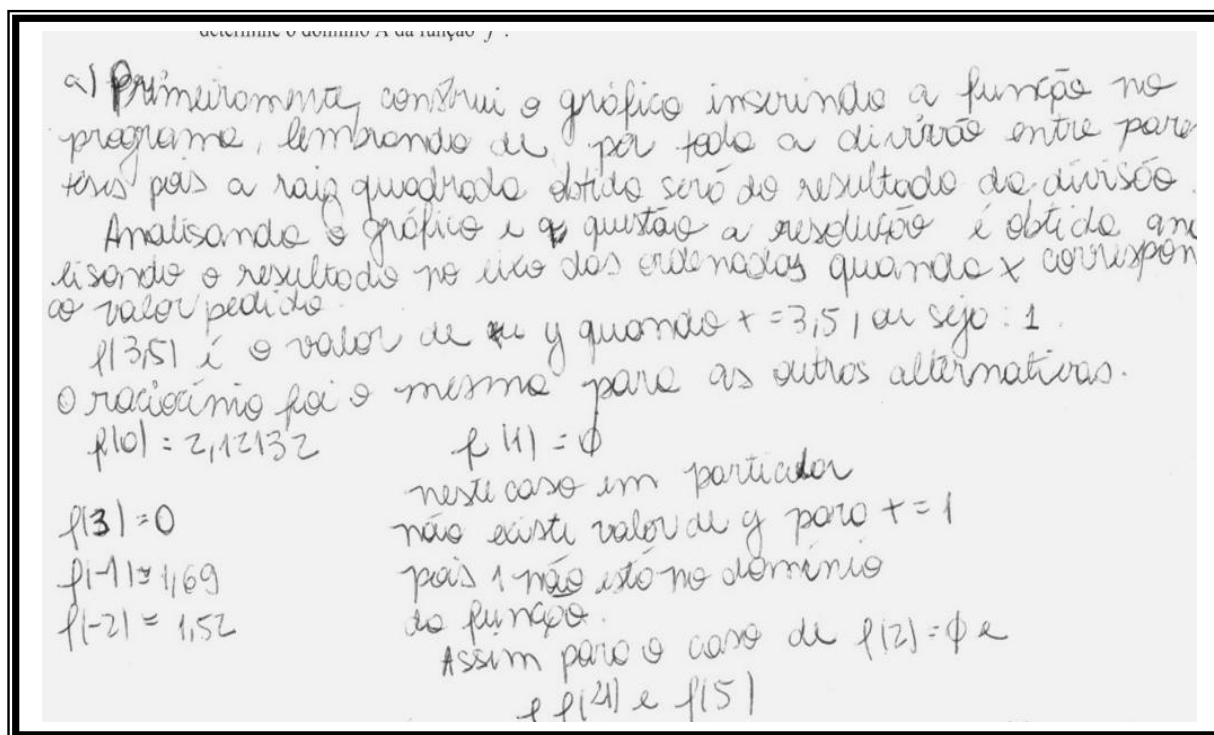 determine o domínio A da função f .
a) Primeiramente, construi o gráfico inserindo a função no
programa, lembrando de por toda a divisão entre parê
teses pois a raiz quadrada obtida será do resultado da divisão.
Analisando o gráfico e a questão a resolução é obtida ana
lisando o resultado no eixo das ordenadas quando x correspon
ao valor pedido.
f(3,5) é o valor de y quando x = 3,5, ou seja: 1.
O raciocínio foi o mesmo para as outras alternativas.
f(0) = 2,12132
f(3) = 0
f(-1) ≅ 1,69
f(-2) = 1,52
f(1) = ϕ
neste caso em particular
não existe valor de y para x = 1
pois 1 não está no domínio
da função.
Assim para o caso de f(2) = ϕ e
f(4) e f(5)